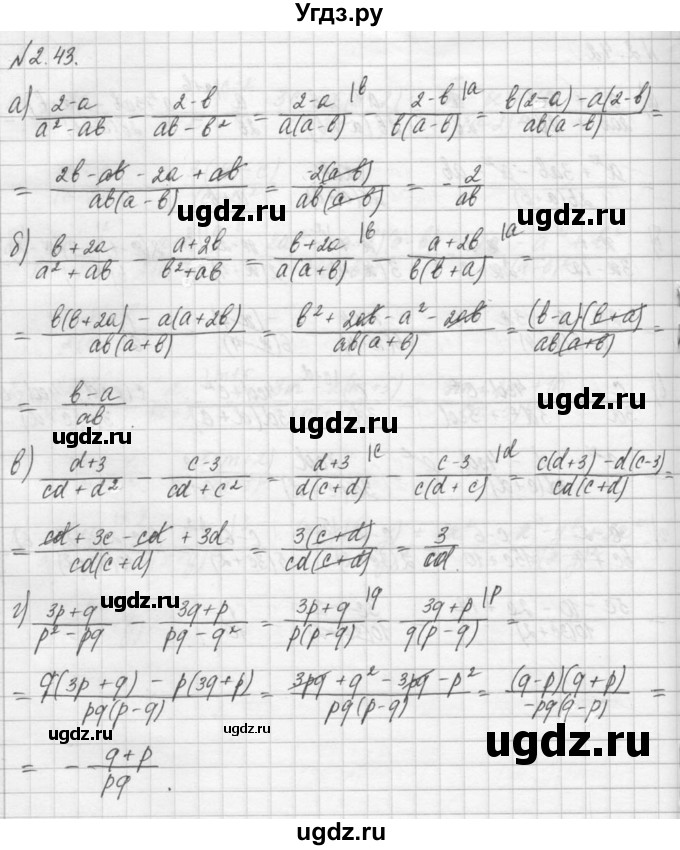 Угдз.ру
№2.43.
а) (2-a)/(a²-ab) - (2-b)/(ab-b²) = (2-a)/(a(a-b)) |b - (2-b)/(b(a-b)) |a = (b(2-a)-a(2-b))/(ab(a-b)) =
= (2b-ab-2a+ab)/(ab(a-b)) = -2(a-b)/(ab(a-b)) = -2/(ab)
ugdz.ru ugdz.ru ugdz.ru
б) (b+2a)/(a²+ab) - (a+2b)/(b²+ab) = (b+2a)/(a(a+b)) |b - (a+2b)/(b(b+a)) |a =
= (b(b+2a)-a(a+2b))/(ab(a+b)) = (b²+2ab-a²-2ab)/(ab(a+b)) = (b-a)(b+a)/(ab(a+b)) =
= (b-a)/(ab).
ugdz.ru ugdz.ru ugdz.ru
в) (d+3)/(cd+d²) - (c-3)/(cd+c²) = (d+3)/(d(c+d)) |c - (c-3)/(c(d+c)) |d = (c(d+3)-d(c-3))/(cd(c+d)) =
= (cd+3c-cd+3d)/(cd(c+d)) = 3(c+d)/(cd(c+d)) = 3/(cd).
ugdz.ru ugdz.ru ugdz.ru
г) (3p+q)/(p²-pq) - (3q+p)/(pq-q²) = (3p+q)/(p(p-q)) |q - (3q+p)/(q(p-q)) |p =
= (q(3p+q)-p(3q+p))/(pq(p-q)) = (3pq+q²-3pq-p²)/(pq(p-q)) = (q-p)(q+p)/(-pq(q-p)) =
= -(q+p)/(pq).
ugdz.ru ugdz.ru ugdz.ru
ugdz.ru